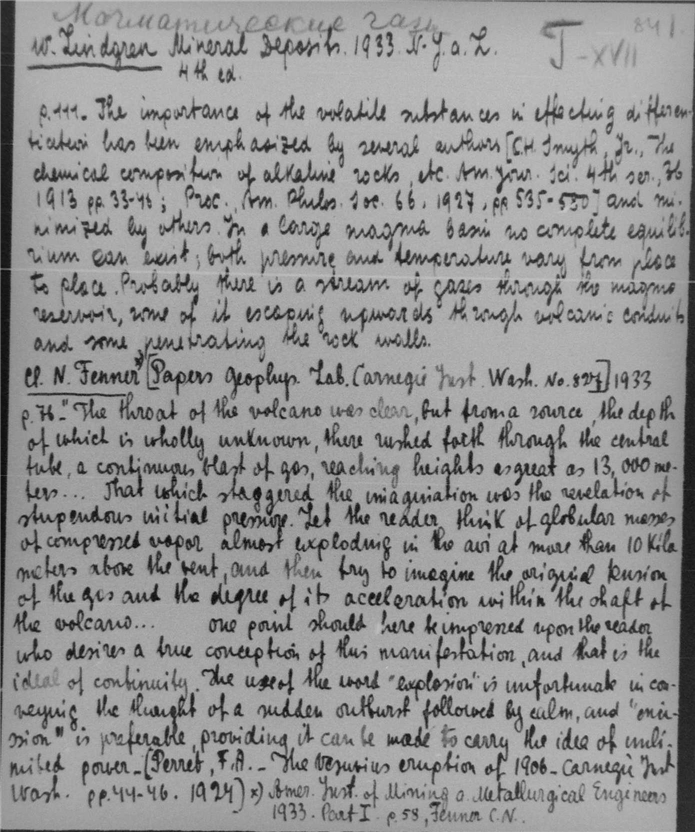 Магматические газы 841.
W. Lindgren Mineral Deposits. 1933. N.Y. a. L. T-XVII
4th ed.
p.111. The importance of the volatile substances in effecting differen-
tiation has been emphasized by several authors [C.H. Smyth, Jr., The
chemical composition of alkaline rocks, etc. Am. Jour. Sci. 4th ser., 36
1913 pp. 33-46; Proc. Am. Philos. Soc. 66. 1927, pp 535-580] and mi-
nimized by others. In a large magma basin no complete equilib-
rium can exist; both pressure and temperature vary from place
to place. Probably there is a stream of gases through the magma
reservoir, some of it escaping upwards through volcanic conduits
and some penetrating the rock walls.
Cl. N. Fenner x) [Papers Geophys. Lab. Carnegie Inst. Wash. No. 827] 1933
p.76-"The throat of the volcano was clear, but from a source, the depth
of which is wholly unknown, there rushed forth through the central
tube, a continuous blast of gas, reaching heights as great as 13,000 me-
ters... That which staggered the imagination was the revelation of
stupendous initial pressure. Let the reader think of globular masses
of compressed vapor almost exploding in the air at more than 10 Kilo
meters above the vent, and then try to imagine the original tension
of the gas and the degree of its acceleration within the shaft of
the volcano... one point should here be impressed upon the reader
who desires a true conception of this manifestation, and that is the
ideal of continuity. The use of the word "explosion" is unfortunate in con-
veying the thought of a sudden outburst followed by calm, and "emis-
sion" is preferable, providing it can be made to carry the idea of unli-
mited power. [Perret, F.A. - The Vesuvius eruption of 1906 - Carnegie Inst
Wash. pp. 44-46. 1924) x) Amer. Inst. of Mining a. Metallurgical Engineers
1933. Part I. p. 58, Fenner C.N.